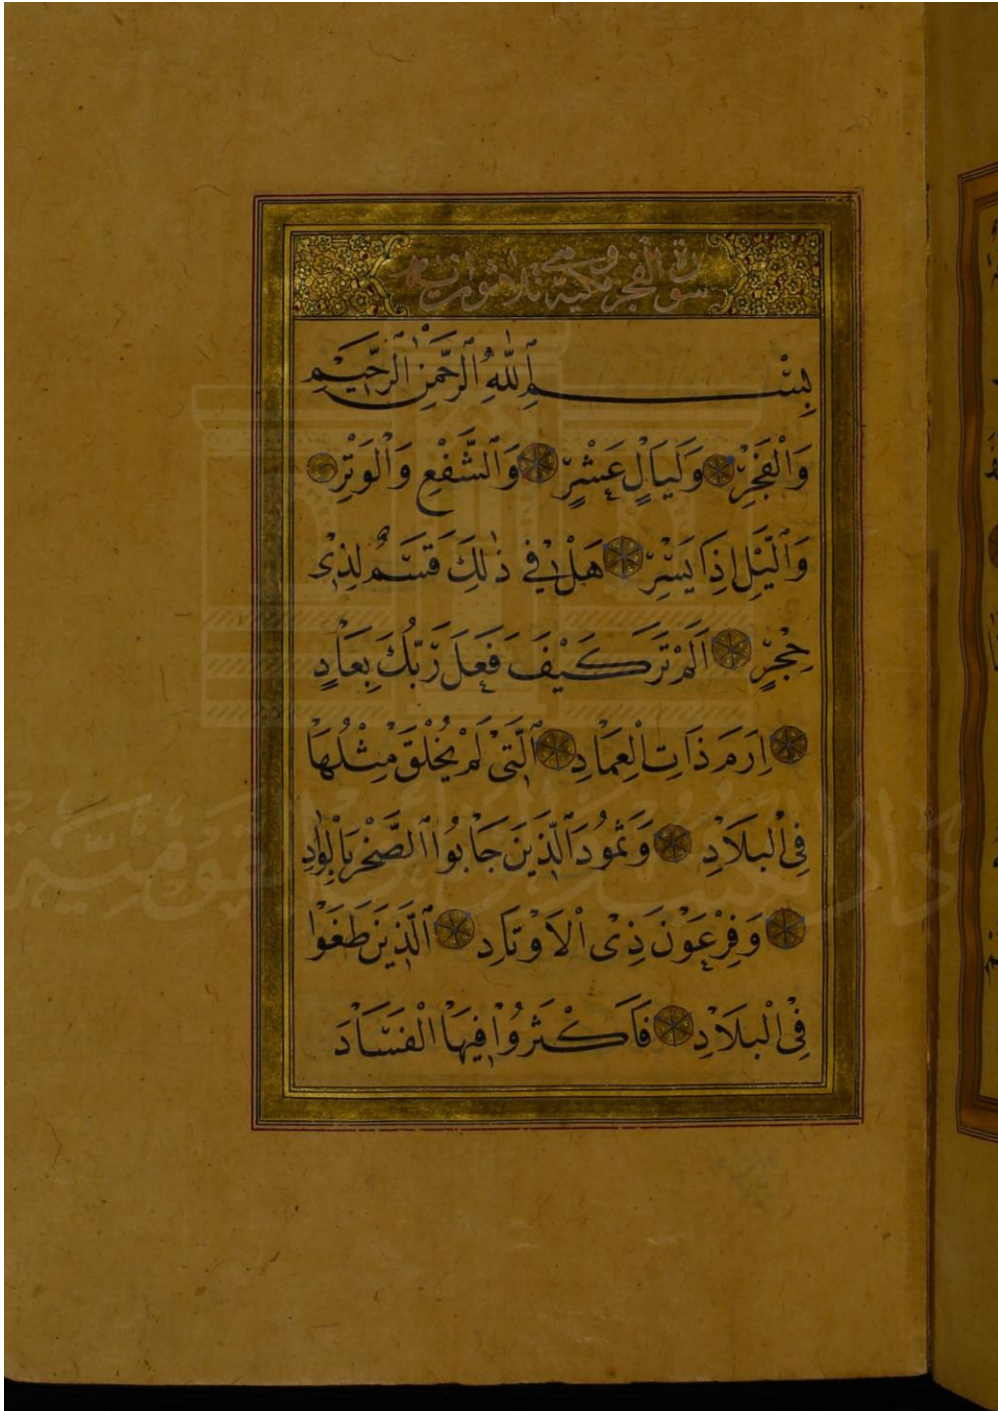 سورة الفجر وهي مكية ثلاثون آية
بِسْمِ ٱللّٰهِ ٱلرَّحْمٰنِ ٱلرَّحِيمِ
وَالْفَجْرِ وَلَيَالٍ عَشْرٍ وَٱلشَّفْعِ وَالْوَتْرِ
وَٱلَّيْلِ اِذَا يَسْرِ هَلْ فِي ذٰلِكَ قَسَمٌ لِذِى
حِجْرٍ اَلَمْ تَرَ كَيْفَ فَعَلَ رَبُّكَ بِعَادٍ
اِرَمَ ذَاتِ الْعِمَادِ ٱلَّتِى لَمْ يُخْلَقْ مِثْلُهَا
فِى الْبِلَادِ وَثَمُودَ ٱلَّذِينَ جَابُوا ٱلصَّخْرَ بِالْوَادِ
وَفِرْعَوْنَ ذِى الْاَوْتَادِ ٱلَّذِينَ طَغَوْا
فِى الْبِلَادِ فَاَكْثَرُوا فِيهَا الْفَسَادَ
دار الكتب والوثائق القومية